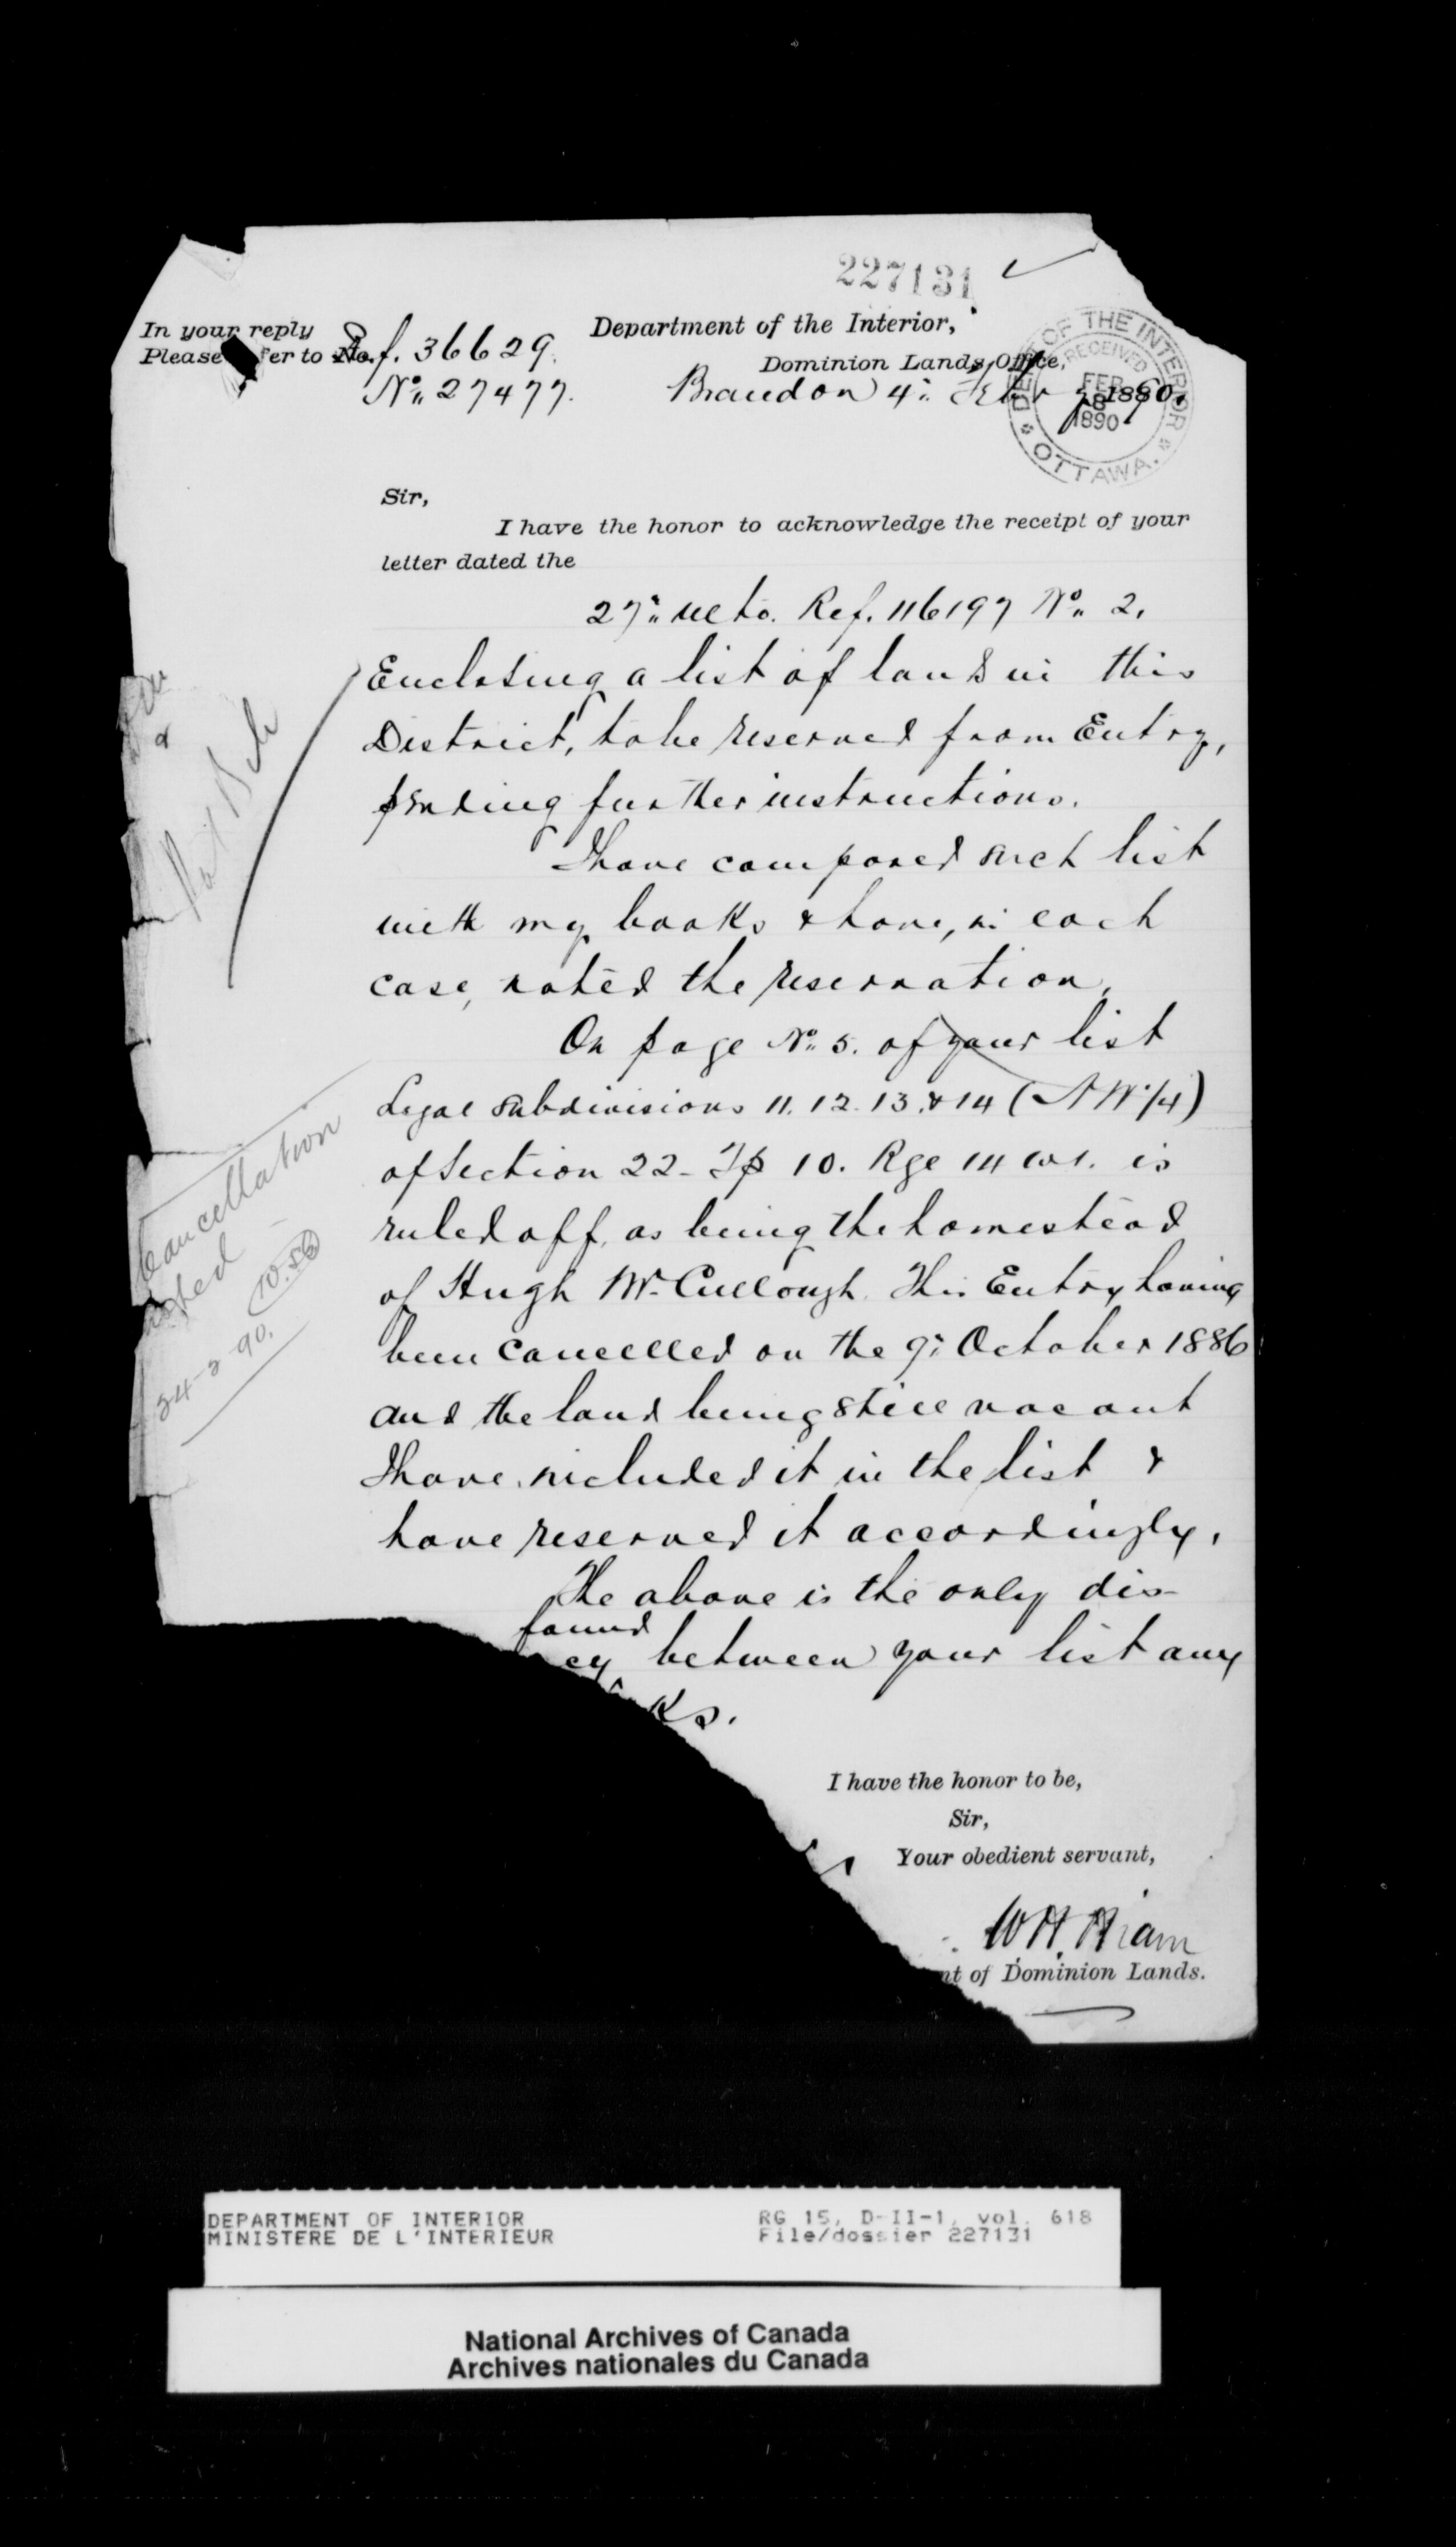 227131
In your reply
Please fer to No.
Ref. 36629.
No. 27477.
Department of the Interior,
Dominion Lands Office,
Brandon 4th Feby 1890.
DEPT OF THE INTERIOR
RECEIVED
FEB
8
1890
OTTAWA.
Sir,
I have the honor to acknowledge the receipt of your
letter dated the
27th ulto. Ref. 116197 No. 2.
Enclosing a list of lands in this
District, to be reserved from Entry,
pending further instructions.
I have compared such list
with my books & have, in each
case, noted the reservation.
On page No. 5. of your list
Legal subdivisions 11. 12. 13. & 14 (NW 1/4)
of Section 22 - Tp 10. Rge 14 W1. is
ruled off, as being the homestead
of Hugh McCullough. This Entry having
been cancelled on the 9th October 1886
and the land being still vacant
I have included it in the list &
have reserved it accordingly.
The above is the only dis-
found
cy between your list any
ks.
Cancellation
24-2-90.
10.56
I have the honor to be,
Sir,
Your obedient servant,
W.H. Hiam
nt of Dominion Lands.
DEPARTMENT OF INTERIOR
MINISTERE DE L'INTERIEUR
RG 15, D-II-1, vol. 618
File/dossier 227131
National Archives of Canada
Archives nationales du Canada